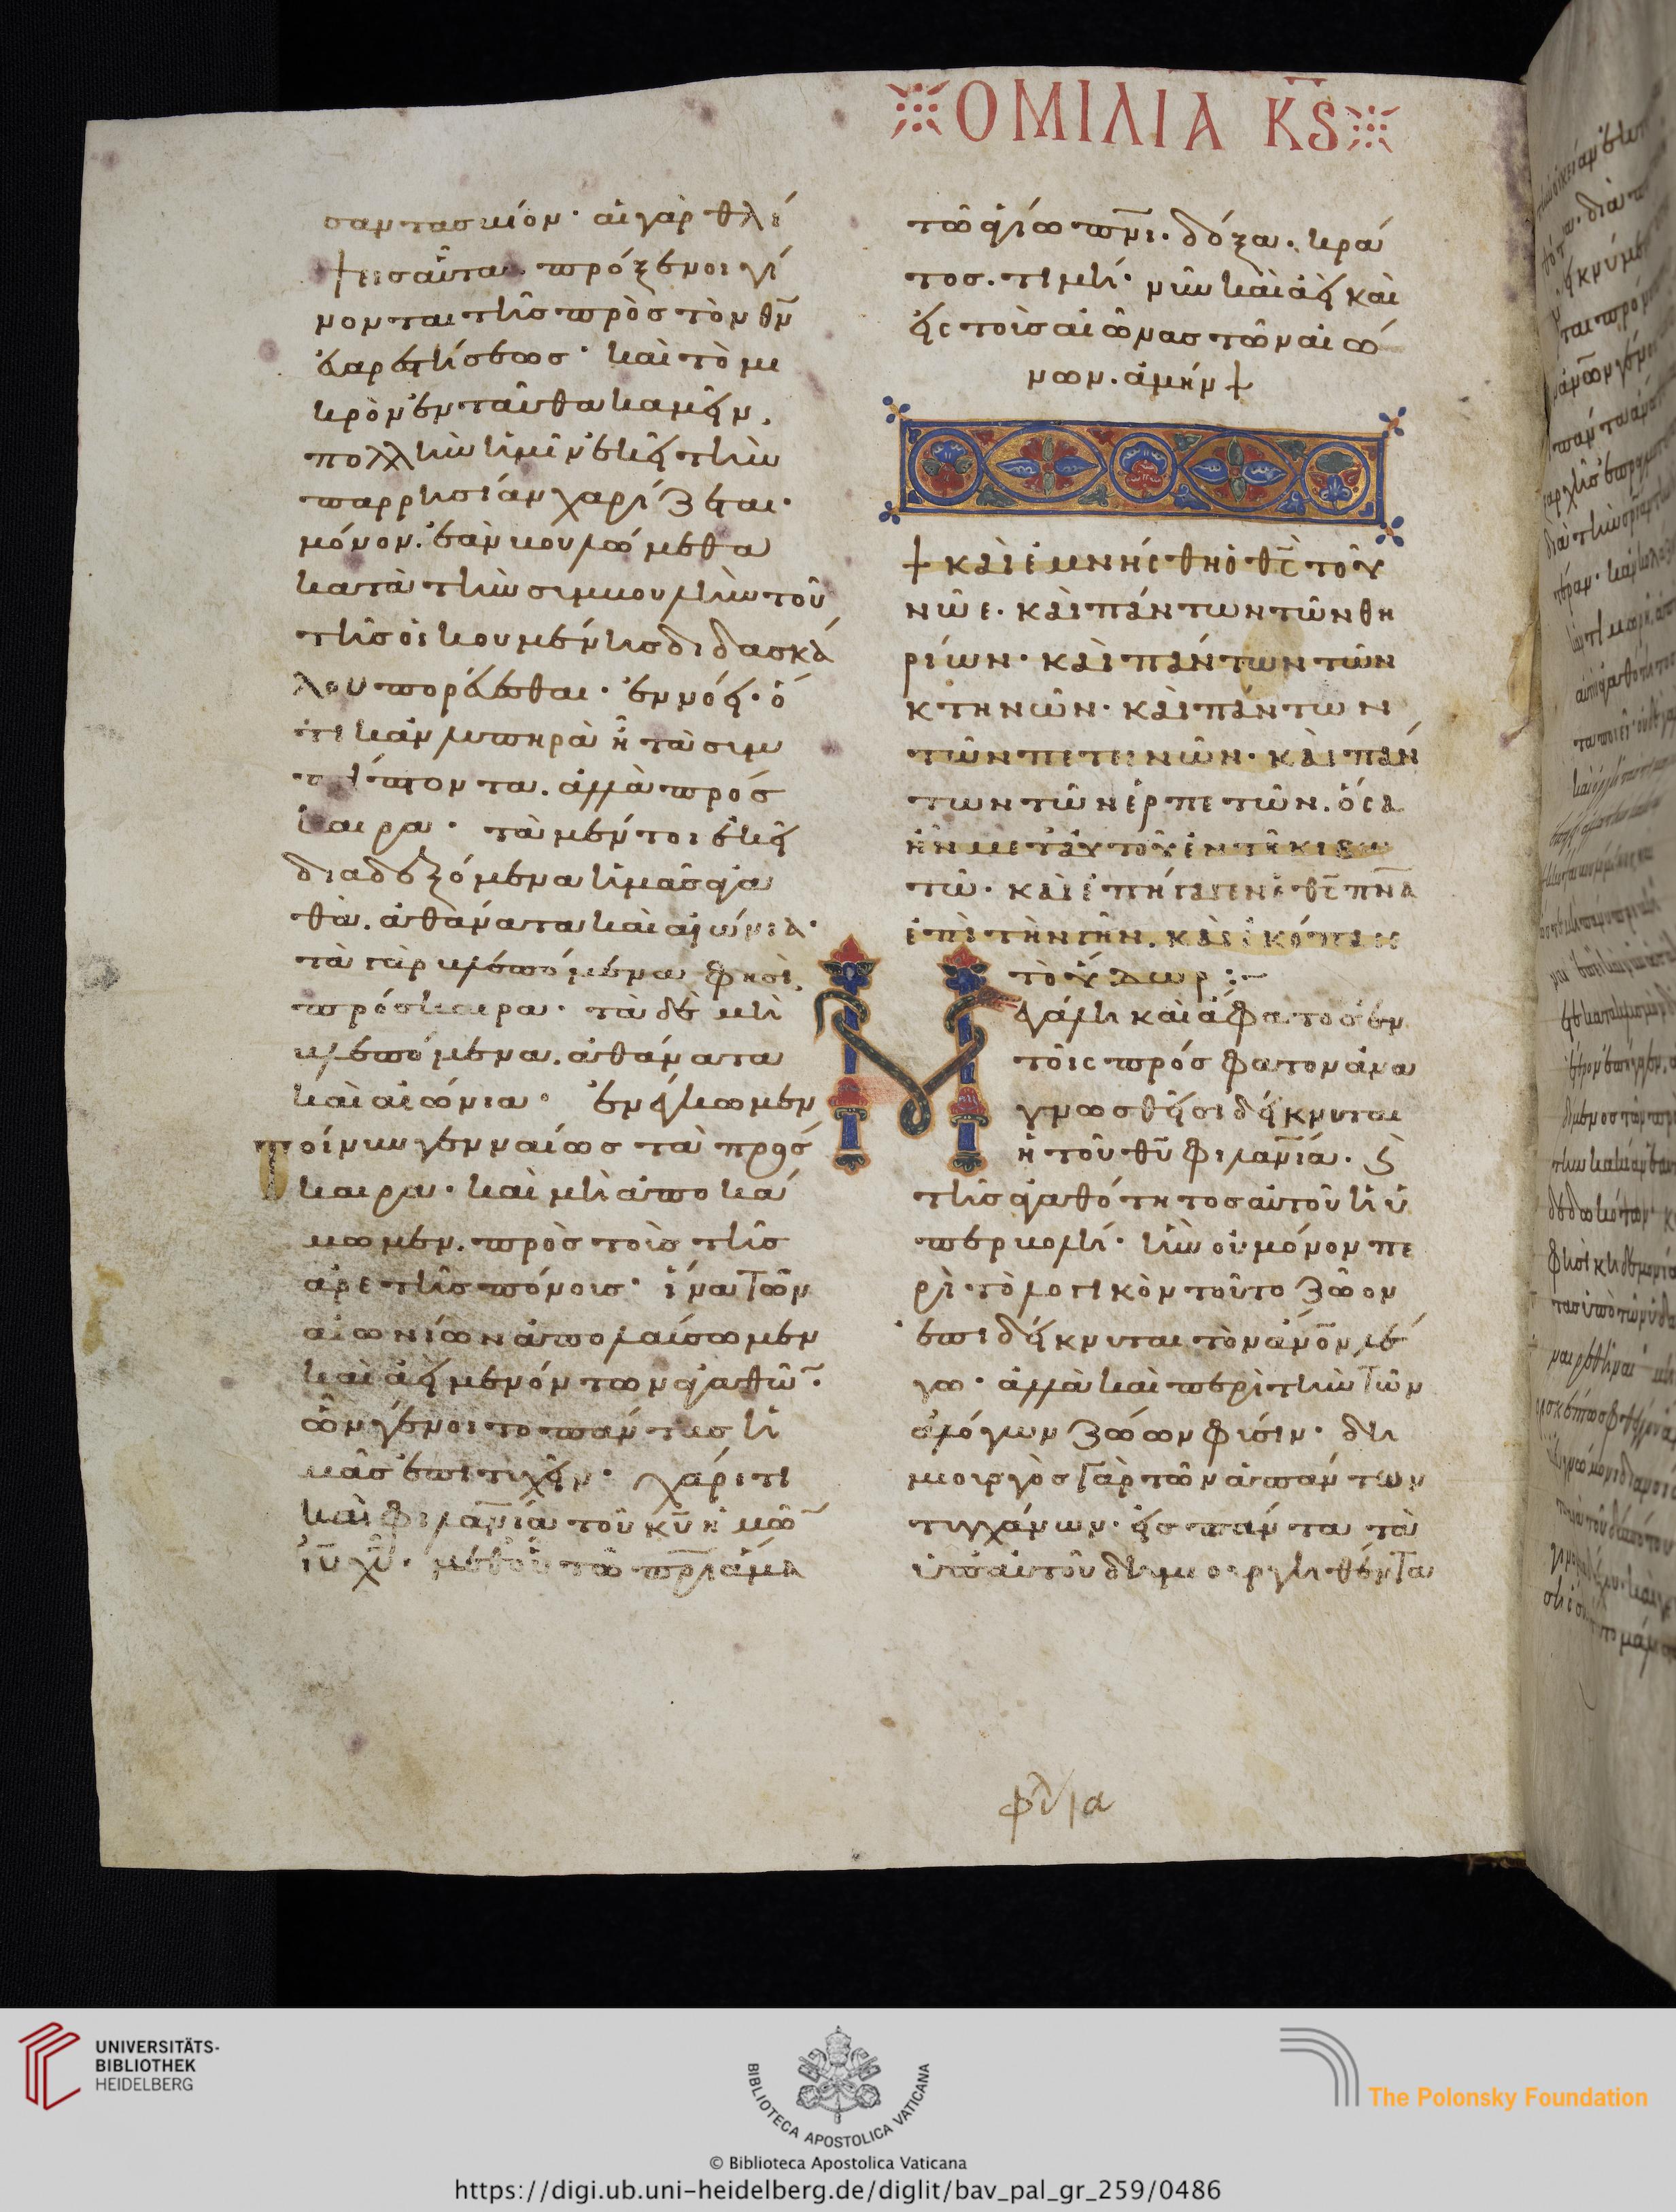 ΟΜΙΛΙΑ Κ̅Ϛ
σαντας κἰὸν· αἱ γὰρ θλί
ψεις αὗται πρόξενοι γί
νονται τῆς πρὸς τὸν θν̅
εὐαρεστήσεως· καὶ τὸ μι
κρὸν ἐνταῦθα καμεῖν,
πολλὴν ἡμῖν ἐκεῖ τὴν
παρρησίαν χαρίζεται·
μόνον ἐὰν βουλώμεθα
κατὰ τὴν συμβουλὴν τοῦ
τῆς οἰκουμένης διδασκά
λου πορεύεσθαι· ἐννόει· ὅ
τι κἂν λυπηρὰ ἦ τὰ συμ
πίπτοντα. ἀλλὰ πρόσ
καιρα· τὰ μέντοι ἐκεῖ
διαδεξόμενα ἡμᾶς ἀγα
θὰ. ἀθάνατα καὶ αἰώνια·
τὰ γὰρ βλεπόμενα φησὶ,
πρόσκαιρα· τὰ δὲ μὴ
βλεπόμενα. ἀθάνατα
καὶ αἰώνια· ἐνέγκωμεν
τοίνυν γενναίως τὰ πρόσ
καιρα· καὶ μὴ ἀποκά
μωμεν. πρὸς τοὺς τῆς
ἀρετῆς πόνους· ἵνα τῶν
αἰωνίων ἀπολαύσωμεν
καὶ ἀεὶ μενόντων ἀγαθῶ̅·
ὧν γένοιτο πάντας ἡ
μᾶς ἐπιτυχεῖν· χάριτι
καὶ φιλαν̅ία τοῦ κυ̅ ἡμῶ̅
ιυ̅ χυ̅· μεθ' οὗ τῶ πρ̅ι ἅμα
τῶ ἁγίω πν̅ι. δόξα. κρά
τος. τιμή· νῦν καὶ ἀεὶ καὶ
εἰς τοὺς αἰῶνας τῶν αἰώ
νων. ἀμήν +
+ καὶ ἐμνήσθη ὁ θς̅ τοῦ
νῶε. καὶ πάντων τῶν θη
ρίων· καὶ πάντων τῶν
κτηνῶν· καὶ πάντων
τῶν πετεινῶν· καὶ πάν
των τῶν ἑρπετῶν. ὅσα
ἦν μετ' αὐτοῦ ἐν τῇ κιβω
τῶ· καὶ ἐπήγαγεν ὁ θς̅ πν̅α
ἐπὶ τὴν γῆν. καὶ ἐκόπασε
τὸ ὕδωρ :-
Μεγάλη καὶ ἄφατος ἐν
τοῖς πρόσφατον ἀνα
γνωσθεῖσι δείκνυται
ἡ τοῦ θυ̅ φιλαν̅ία. ϗ
τῆς ἀγαθότητος αὐτοῦ ἡ ὑ
περβολή· ἣν οὐ μόνον πε
ρὶ τὸ λογικὸν τοῦτο ζῶον
ἐπιδείκνυται τὸν ἄν̅ον λέ
γω· ἀλλὰ καὶ περὶ τὴν τῶν
ἀλόγων ζώων φύσιν· δη
μιουργὸς γὰρ τῶν ἁπάντων
τυγχάνων· εἰς πάντα τὰ
ὑπ' αὐτοῦ δημιουργηθέντα
UNIVERSITÄTS-
BIBLIOTHEK
HEIDELBERG
BIBLIOTECA APOSTOLICA VATICANA
The Polonsky Foundation
© Biblioteca Apostolica Vaticana
https://digi.ub.uni-heidelberg.de/diglit/bav_pal_gr_259/0486